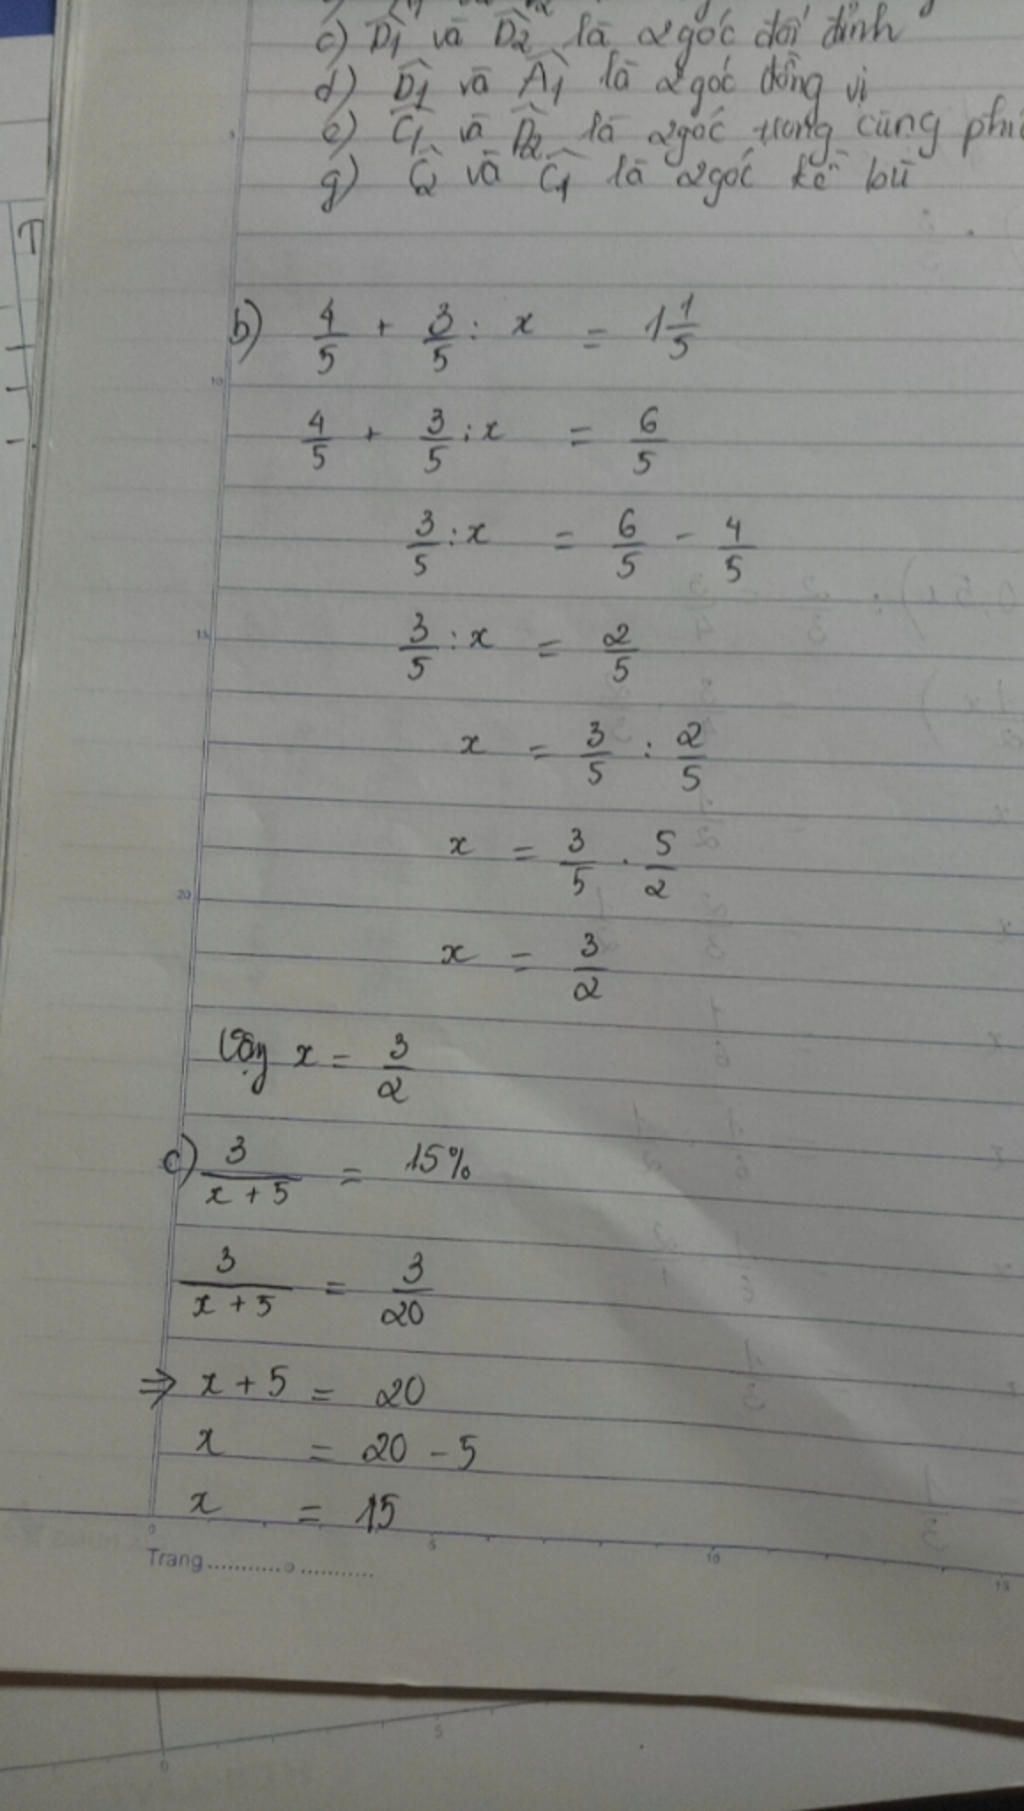 c) D̂1 và D̂2 là 2 góc đối đỉnh
d) D̂1 và Â1 là 2 góc đồng vị
e) Ĉ1 và D̂2 là 2 góc trong cùng
g) Ĉ2 và Ĉ1 là 2 góc kề bù
b) 4/5 + 3/5 : x = 1 1/5
4/5 + 3/5 : x = 6/5
3/5 : x = 6/5 - 4/5
3/5 : x = 2/5
x = 3/5 : 2/5
x = 3/5 . 5/2
x = 3/2
Vậy x = 3/2
c) 3/(x + 5) = 15%
3/(x + 5) = 3/20
⇒ x + 5 = 20
x = 20 - 5
x = 15
Trang